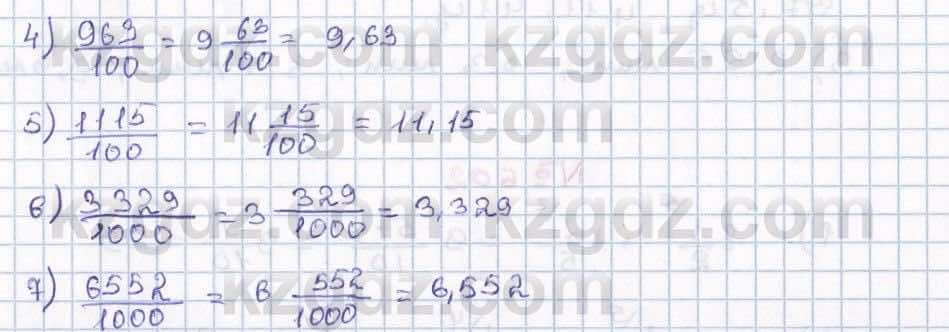 4) 963/100 = 9 63/100 = 9,63
5) 1115/100 = 11 15/100 = 11,15
6) 3329/1000 = 3 329/1000 = 3,329
7) 6552/1000 = 6 552/1000 = 6,552
kzgdz.com